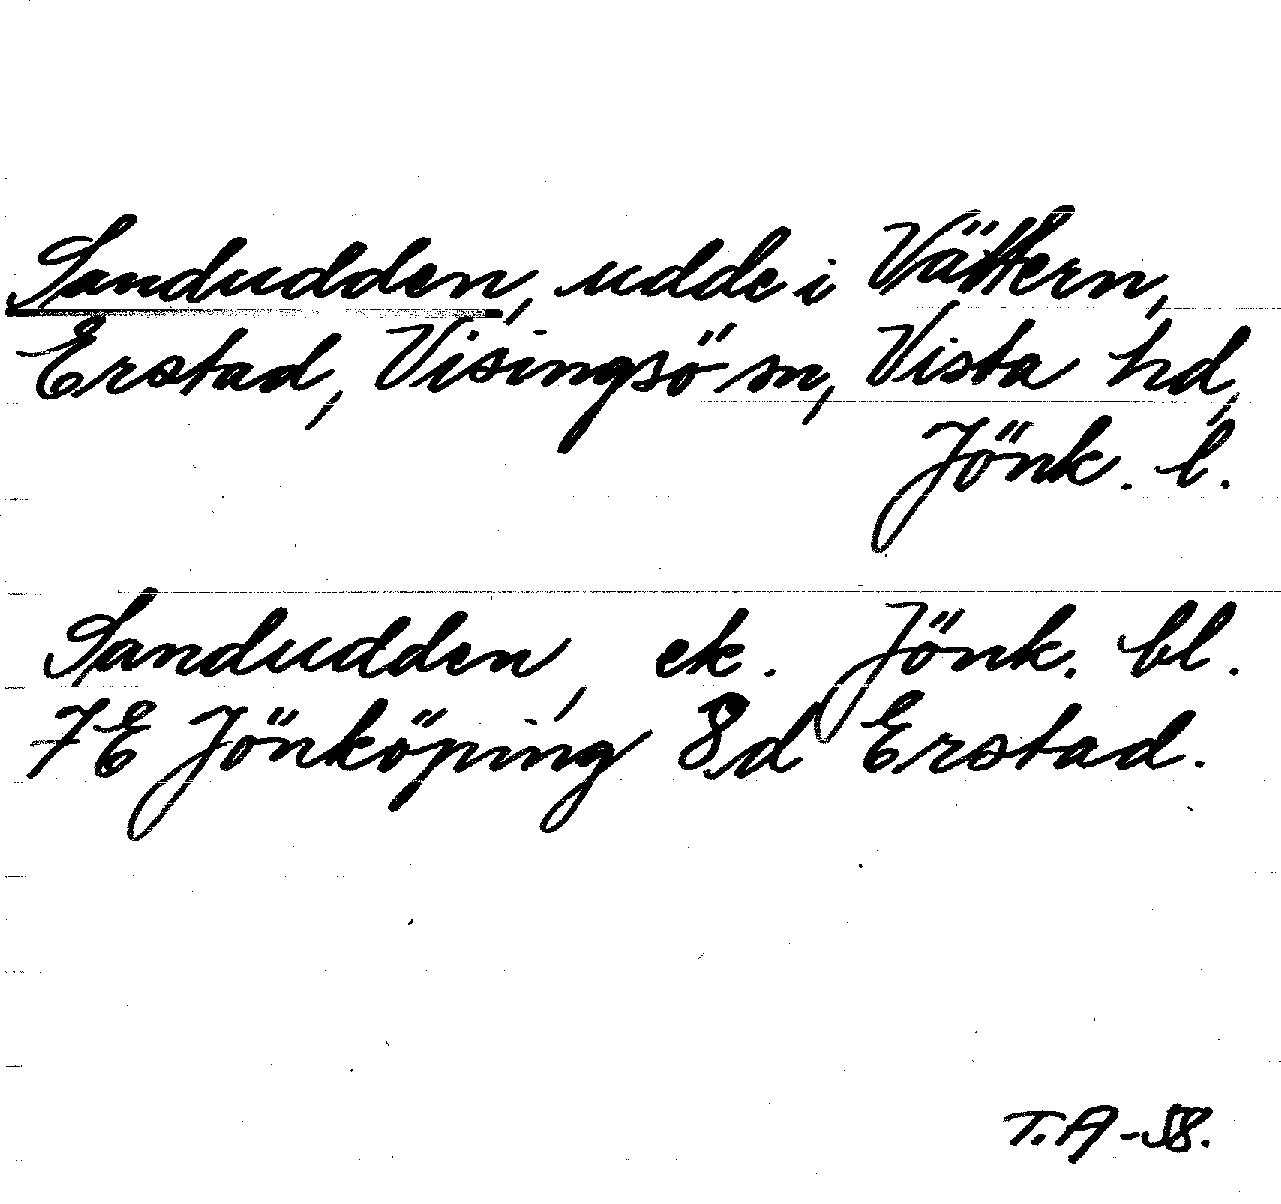 Sandudden, udde i Vättern,
Erstad, Visingsö sn, Vista hd,
Jönk. l.
Sandudden, ek. Jönk. bl.
7E Jönköping 8d Erstad.
T.A-58.